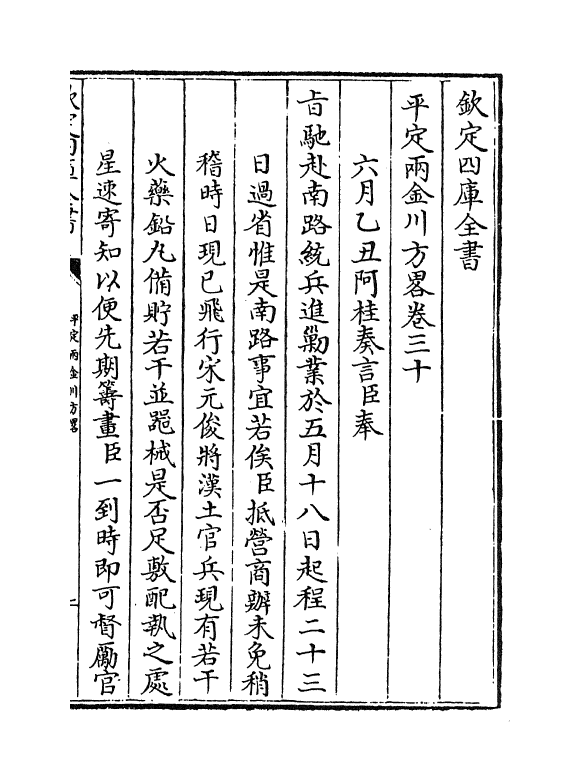 欽定四庫全書
平定兩金川方畧卷三十
六月乙丑阿桂奏言臣奉
旨馳赴南路統兵進勦業於五月十八日起程二十三
日過省惟是南路事宜若俟臣抵營商辦未免稍
稽時日現已飛行宋元俊將漢土官兵現有若干
火藥鉛九備貯若干並器械是否足敷配執之處
星速寄知以便先期籌畫臣一到時即可督勵官
平定兩金川方畧